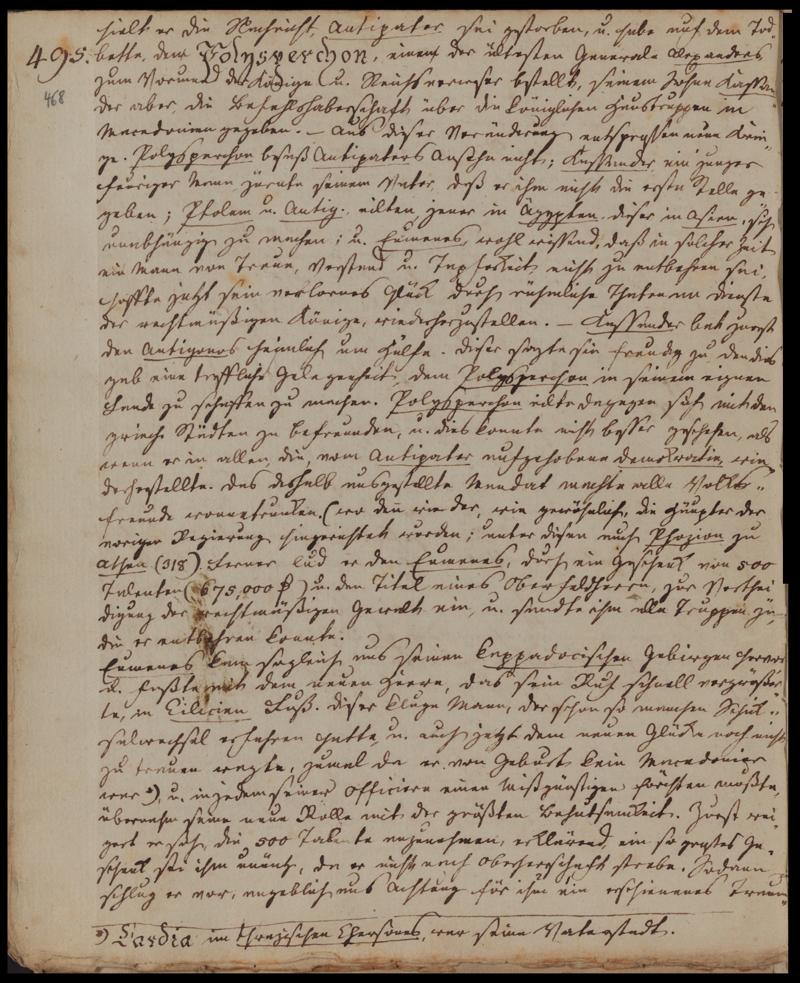 hielt er die Nachricht, Antipater sei gestorben, u. habe auf dem Tod-
495. bette, dem Polysperchon, einem der ältesten Generale Alexanders
468
zum Vormund der Könige u. Reichsverweser bstellt, seinem Sohne Kassan-
der aber, die Befehlshaberschaft über die königlichen Haustruppen in
Macedonien gegeben. — Aus dieser Veränderung entsprossen neue Krie-
ge. Polysperchon besaß Antipaters Ansehn nicht; Kassander ein junger
feuriger Mann zürnte seinem Vater, daß er ihm nicht die erste Stelle ge-
geben; Ptolem. u. Antig. eilten, jener in Ägypten, dieser in Asien, sich
unabhängig zu machen; u. Eumenes, wohl wissend, daß in solcher Zeit
ein Mann von Treue, Verstand u. Tapferkeit nicht zu entbehren sei,
hoffte jetzt sein verlornes Glück durch rühmliche Thaten im Dienste
der rechtmäßigen Könige, wiederherzustellen. — Kassander bat zuerst
den Antigonos heimlich um Hülfe. Dieser sagte sie freudig zu, denn dies
gab eine treffliche Gelegenheit, dem Polysperchon in seinem eignen
Lande zu schaffen zu machen. Polysperchon eilte dagegen sich mit den
griech. Städten zu befreunden, u. dies konnte nicht besser geschehen, als
wenn er in allen, die, vom Antipater aufgehobene Demokratie, wie-
derherstellte. Das deshalb ausgestellte Mandat machte alle Volks-
freunde wonnetrunken. (wo denn wieder, wie gewöhnlich, die Häupter der
vorigen Regierung hingerichtet wurden; unter diesen auch Phozion zu
Athen (318). Ferner lud er den Eumenes, durch ein Geschenk von 500
Talenten (675,000 ) u. den Titel eines Oberfeldherrn, zur Verthei-
digung der rechtmäßigen Gewalt ein, u. sandte ihm alle Truppen zu,
die er entbehren konnte.
Eumenes kam sogleich aus seinen kappadocischen Gebirgen hervor
u. faßte mit dem neuen Heere, das sein Ruf schnell vergrößer-
te, in Cilicien Fuß. Dieser kluge Mann, der schon so manchen Schick-
salwechsel erfahren hatte, u. auch jetzt dem neuen Glücke noch nicht
zu trauen wagte, zumal da er von Geburt kein Macedonier
war *), u. in jedem seiner Officiere einen Mißgünstigen fürchten mußte,
übernahm seine neue Rolle mit der größten Behutsamkeit. Zuerst wei-
gert er sich, die 500 Talente anzunehmen, erklärend, ein so großes Ge-
schenk sei ihm unnütz, da er nicht nach Oberherrschaft strebe. Sodann
schlug er vor, angeblich aus Achtung für ihm ein erschienenes Traum-
*) Cardia im thrazischen Chersones, war seine Vaterstadt.